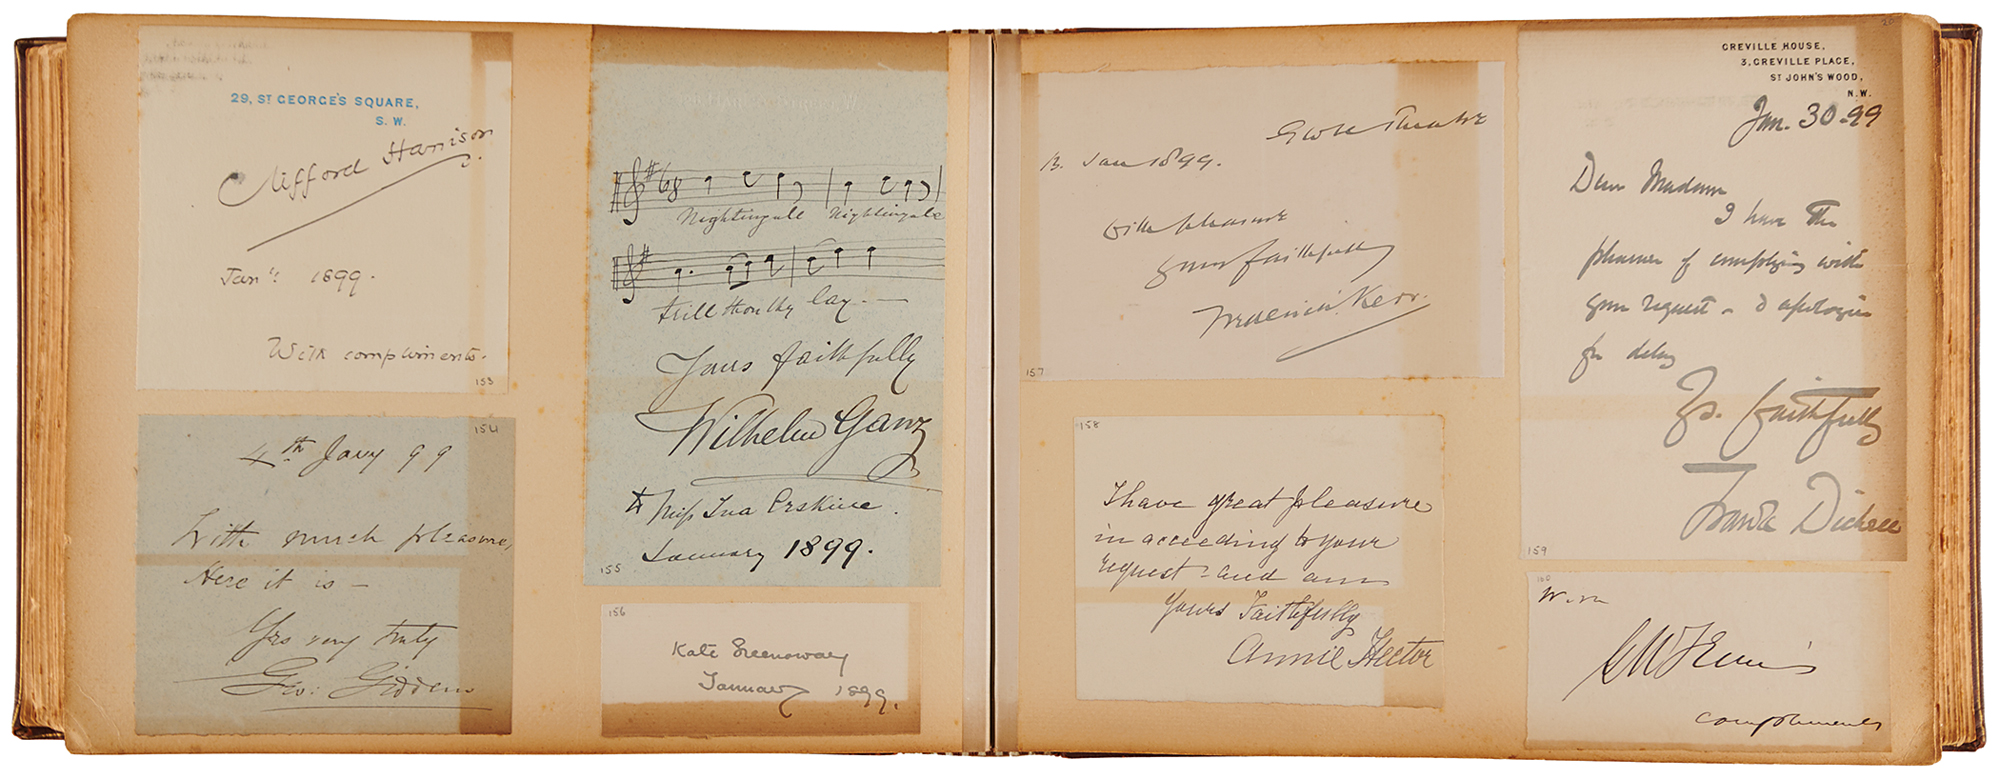 29, ST GEORGE'S SQUARE,
S. W.
Clifford Harrison
Jany: 1899.
With compliments.
153
154
4th Jany 99
With much pleasure,
Here it is —
Yrs very truly
Geo: Giddens
Nightingale Nightingale
trill thou thy lay —
Yours faithfully
Wilhelm Ganz
to Miss Ina Erskine.
January 1899.
155
156
Kate Greenaway
January 1899.
Globe Theatre
13. Jan 1899.
With pleasure
yours faithfully
Frederick Kerr.
157
158
I have great pleasure
in acceeding to your
request - and am
Yours Faithfully
Annie Hector
20
GREVILLE HOUSE,
3, GREVILLE PLACE,
ST JOHN'S WOOD,
N.W.
Jan. 30. 99
Dear Madam
I have the
pleasure of complying with
your request - & apologise
for delay
Yrs. faithfully
Frank Dicksee
159
160
With
compliments